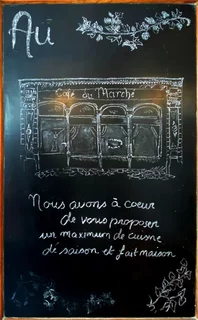 Au
Café du Marché
Nous avons à coeur
de vous proposer
un maximum de cuisine
de saison et fait maison